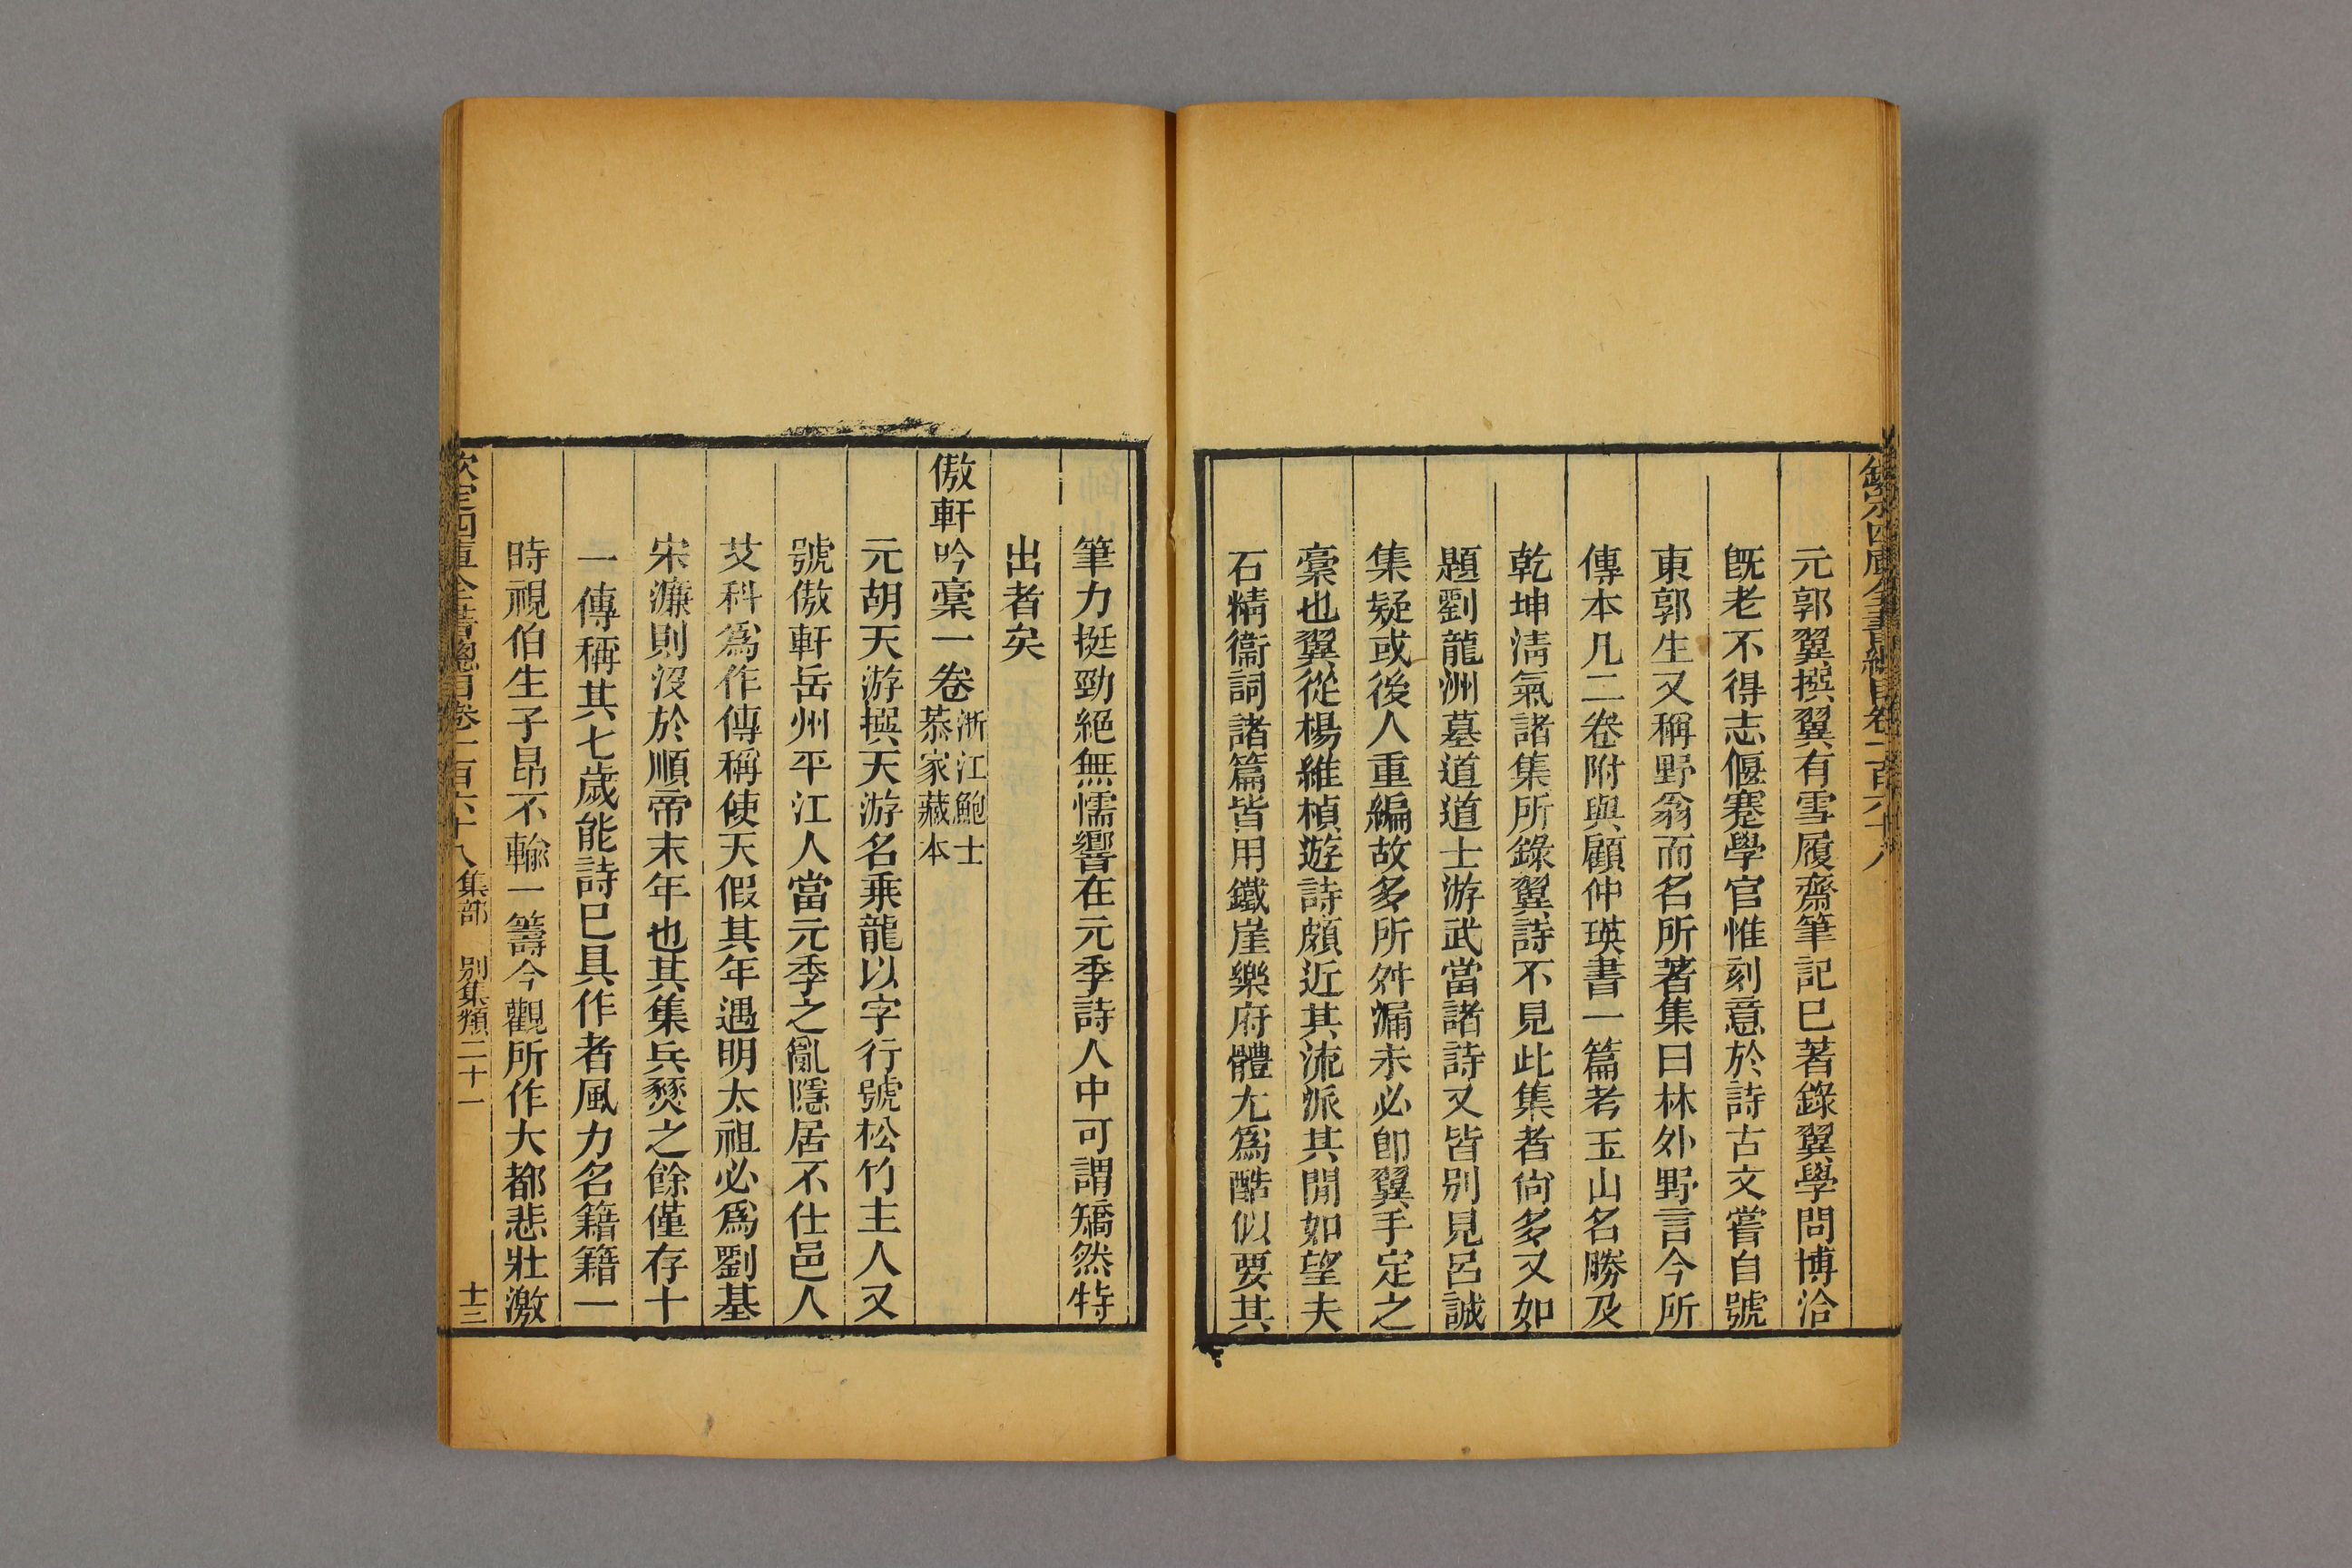 元郭翼撰翼有雪履齋筆記已著錄翼學問博洽
旣老不得志偃蹇學官惟刻意於詩古文嘗自號
東郭生又稱野翁而名所著集曰林外野言今所
傳本凡二卷附與顧仲瑛書一篇考玉山名勝及
乾坤淸氣諸集所錄翼詩不見此集者尙多又如
題劉龍洲墓道道士游武當諸詩又皆別見呂誠
集疑或後人重編故多所舛漏未必卽翼手定之
稾也翼從楊維楨遊詩頗近其流派其間如望夫
石精衞詞諸篇皆用鐵崖樂府體尤爲酷似要其
筆力挺勁絕無懦響在元季詩人中可謂矯然特
出者矣
傲軒吟稾一卷浙江鮑士恭家藏本
元胡天游撰天游名乘龍以字行號松竹主人又
號傲軒岳州平江人當元季之亂隱居不仕邑人
艾科爲作傳稱使天假其年遇明太祖必爲劉基
宋濂則沒於順帝末年也其集兵燹之餘僅存十
一傳稱其七歲能詩已具作者風力名籍籍一
時視伯生子昂不輸一籌今觀所作大都悲壯激
欽定四庫全書總目卷一百六十八 集部 別集類二十一 十三